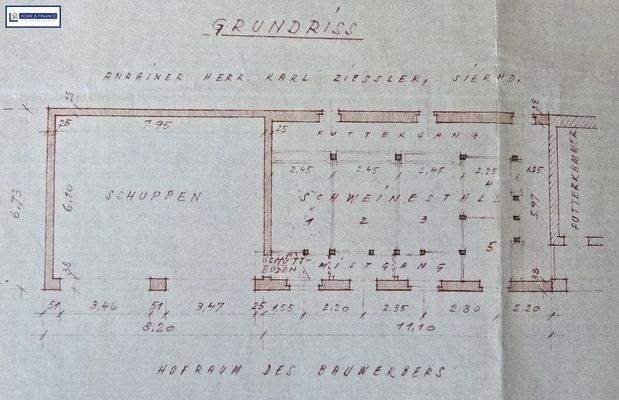 HOME & FINANCE
GRUNDRISS
ANRAINER HERR KARL ZIESSLER, SIERND.
25
7.95
25 25
38
FUTTERGANG
2.45 2.45 2.45 2.25 1.25
6.73
6.10
SCHUPPEN
SCHWEINESTALL
1 2 3 4 5
5.97
FUTTERKAMMER
SCHÜTT-
BODEN
MISTGANG
38 38
51 3,46 51 3,47 25 1.55 2.20 2.35 2.80 2.20
8.20 11.10
HOFRAUM DES BAUWERBERS